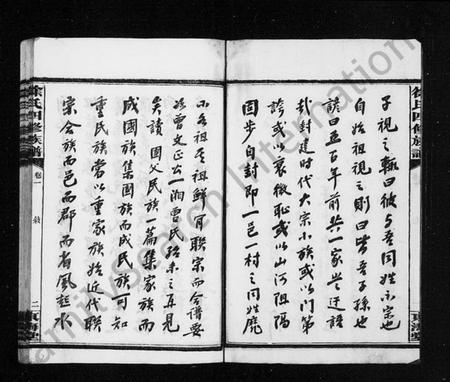 子視之輒曰彼與吾同姓不宗也
自始祖視之則曰皆吾子孫也
諺曰五百年前共一家豈迂語
哉封建時代大宗小族或以門第
誇或以衰微恥或以山河阻隔
固步自封即一邑一村之同姓
不名祖吾祖鮮有聯宗而合譜要
曾文正出一湘曾氏
吳讀國父民族一篇集家族而
成國族集國族而成民族可知
重民族當以重家族始近代聯
宗合族而邑而郡而省風起水
徐氏四修族譜
卷一
二
東海堂
徐氏四修族譜
東海堂
familysearch International